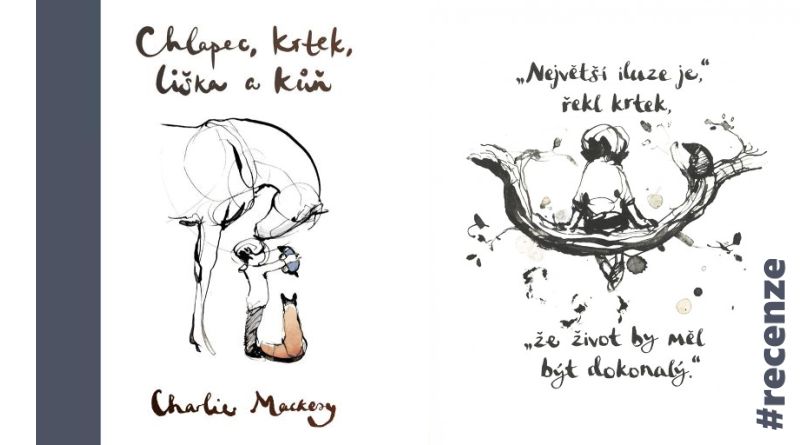 Chlapec, krtek,
liška a kůň
Charlie Mackesy
„Největší iluze je,“
řekl krtek,
„že život by měl
být dokonalý.“
#recenze